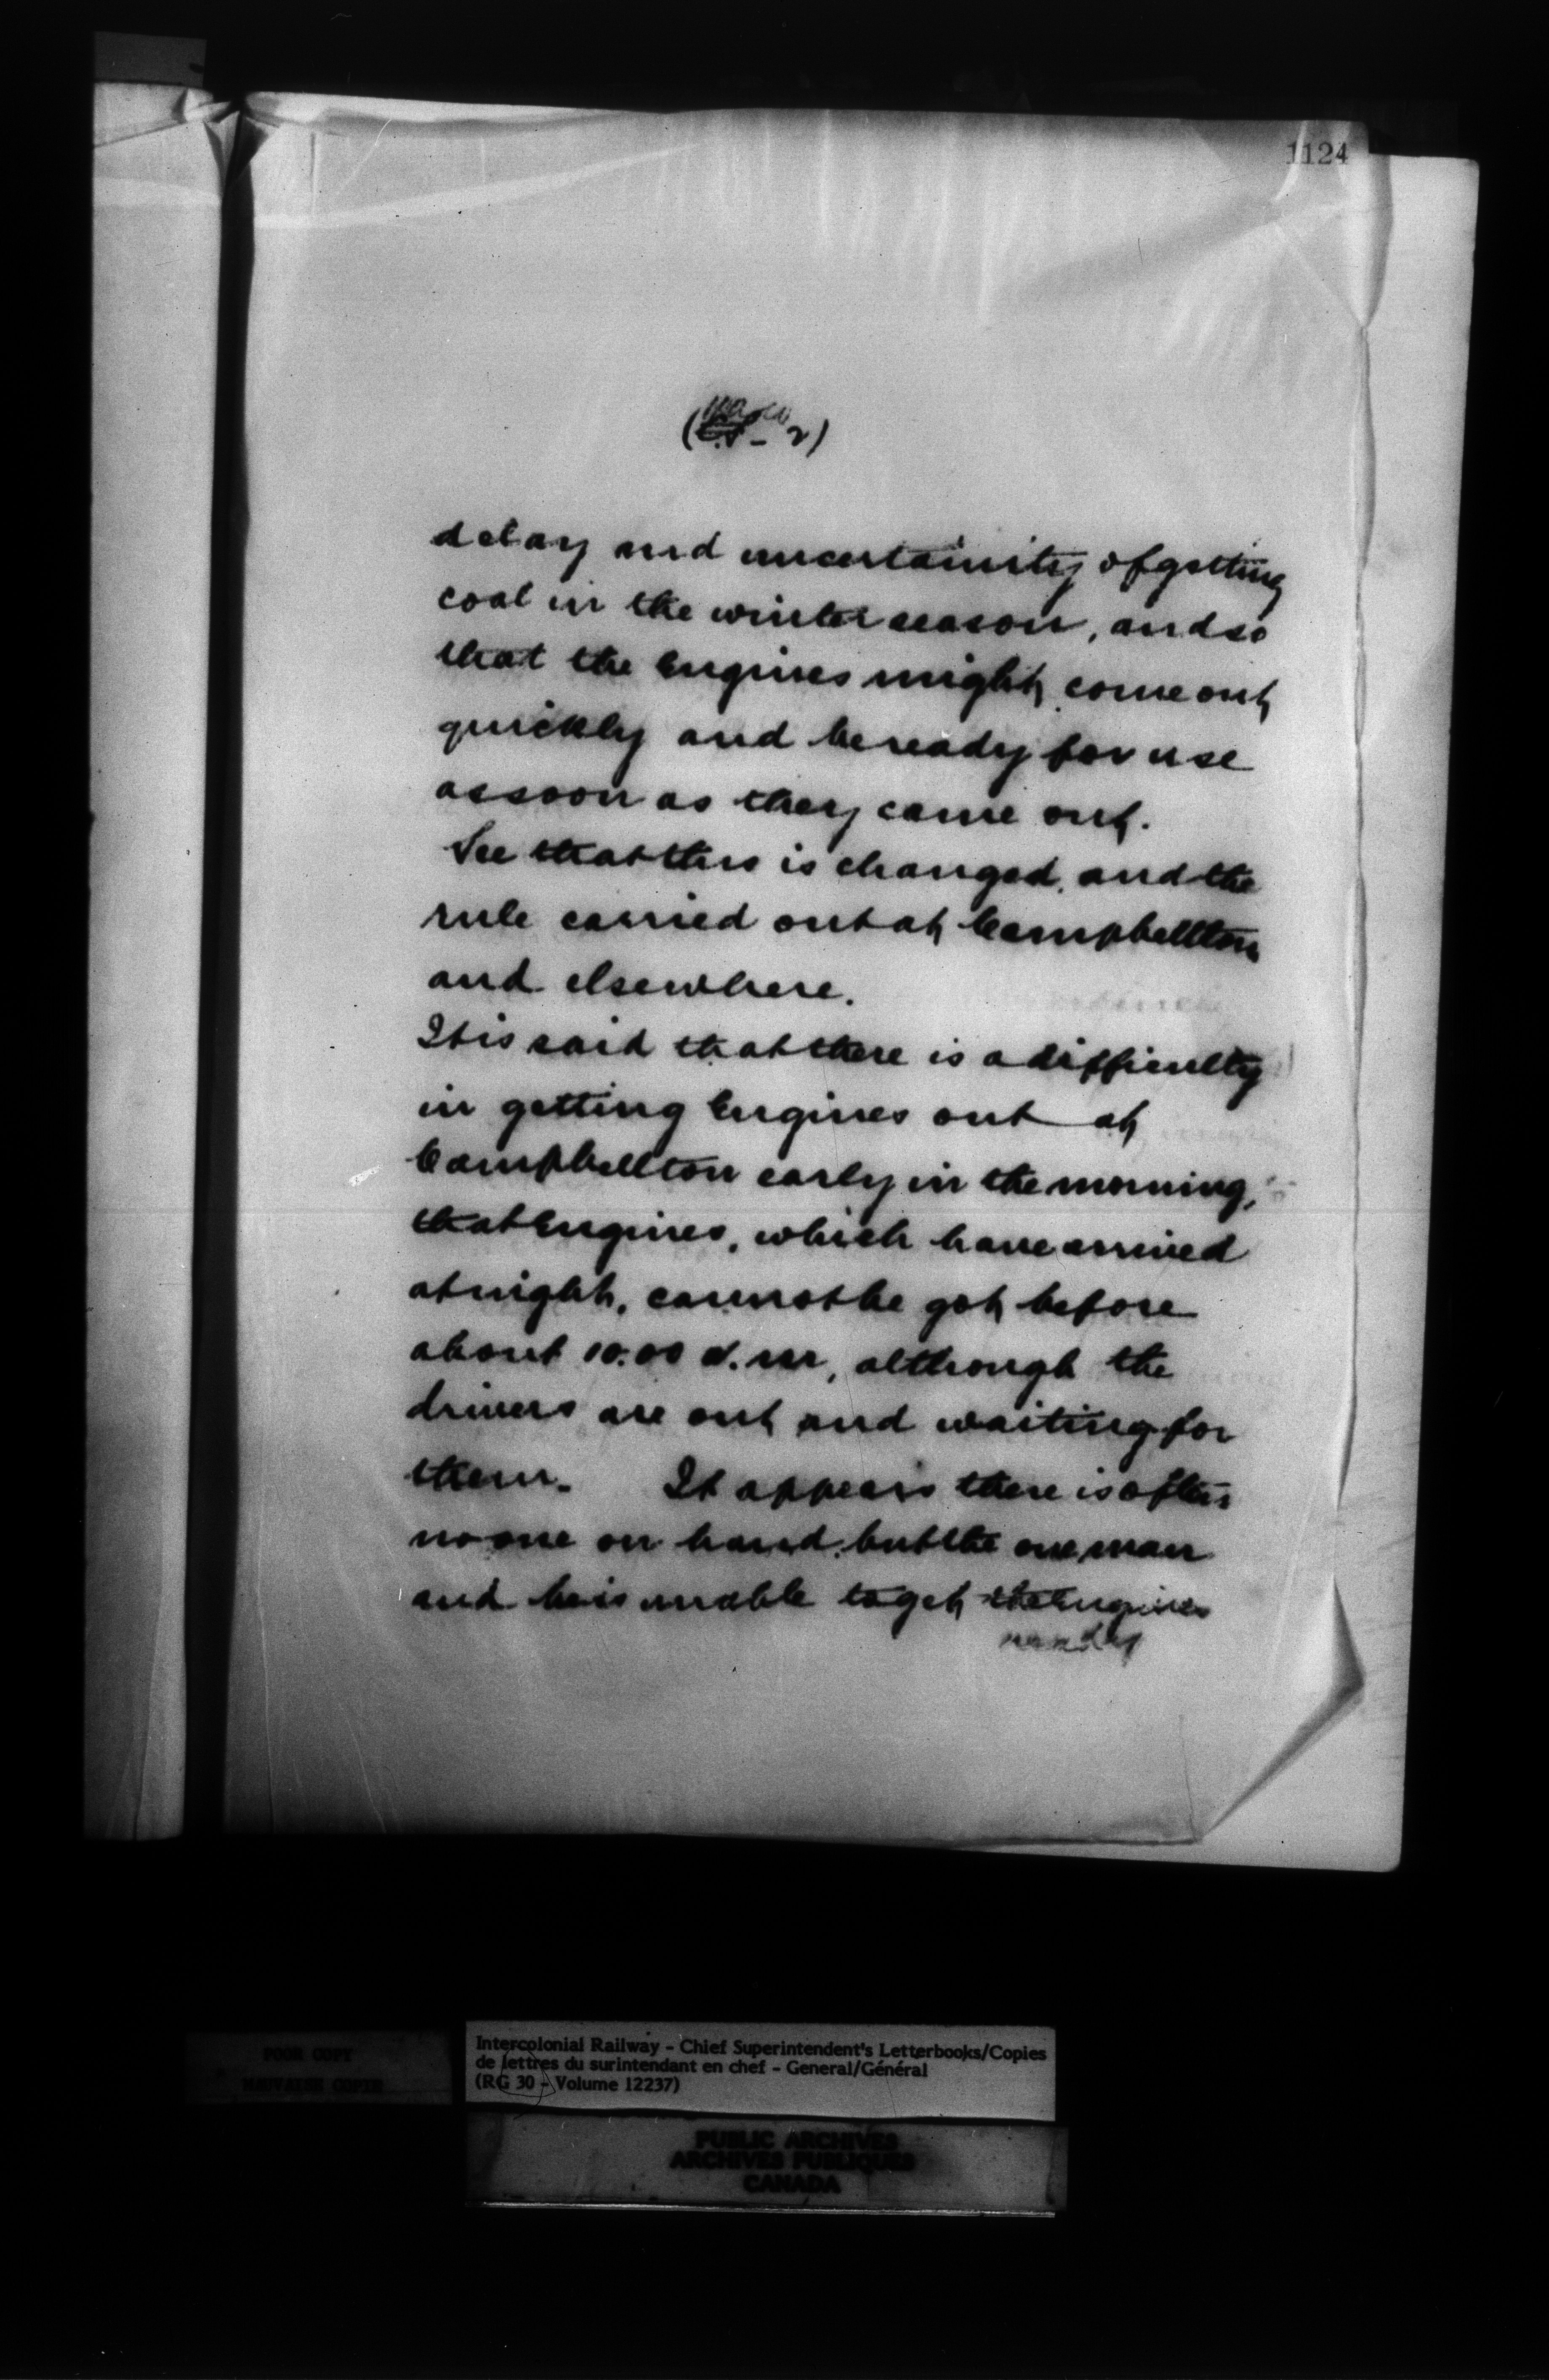 1124
2)
delay and uncertainity of getting
coal in the winter season, and so
that the Engines might come out
quickly and be ready for use
as soon as they came out.
See that this is changed, and the
rule carried out at Campbellton
and elsewhere.
It is said that there is a difficulty
in getting Engines out at
Campbellton early in the morning,
that Engines, which have arrived
at night, cannot be got before
about 10.00 a.m, although the
drivers are out and waiting for
them. It appears there is often
no one on hand, but the one man
and he is unable to get the Engines
ready
POOR COPY
MAUVAISE COPIE
Intercolonial Railway - Chief Superintendent's Letterbooks/Copies
de lettres du surintendant en chef - General/Général
(RG 30 - Volume 12237)
PUBLIC ARCHIVES
ARCHIVES PUBLIQUES
CANADA